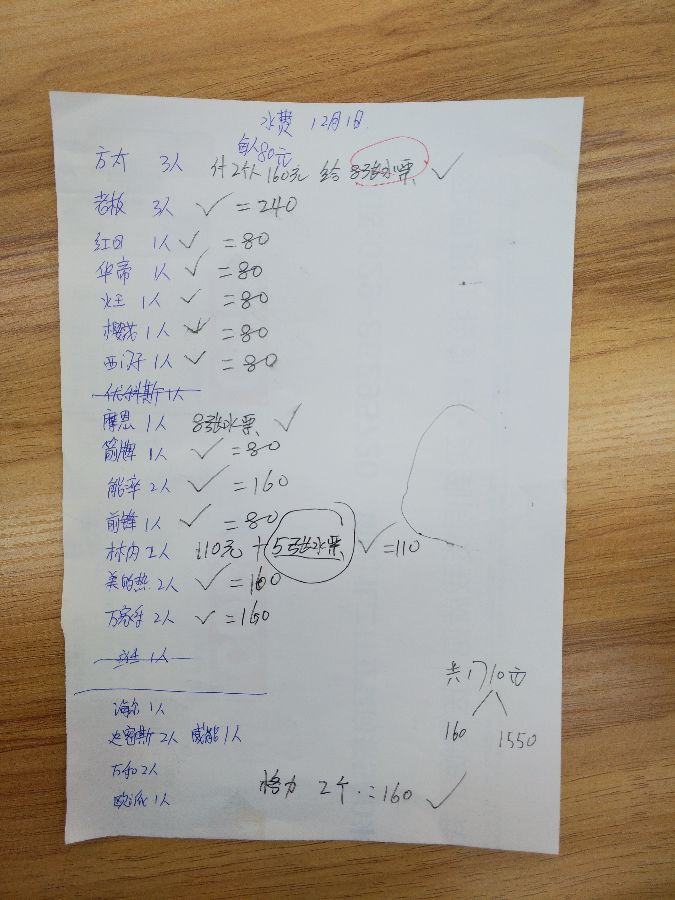 水费 12月1日
每人80元
方太 3人 付2个人160元 给8张水票 ✓
老板 3人 ✓ =240
红日 1人 ✓ =80
华帝 1人 ✓ =80
火王 1人 ✓ =80
樱花 1人 ✓ =80
西门子 1人 ✓ =80
优科斯 1人
摩恩 1人 8张水票 ✓
箭牌 1人 ✓ =80
能率 2人 ✓ =160
前锋 1人 ✓ =80
林内 2人 110元+5张水票 ✓ =110
美的热 2人 ✓ =160
万家乐 2人 ✓ =160
1人
共1710元
160 1550
海尔 1人
史密斯 2人 威能 1人
万和 2人
欧派 1人
格力 2个 =160 ✓